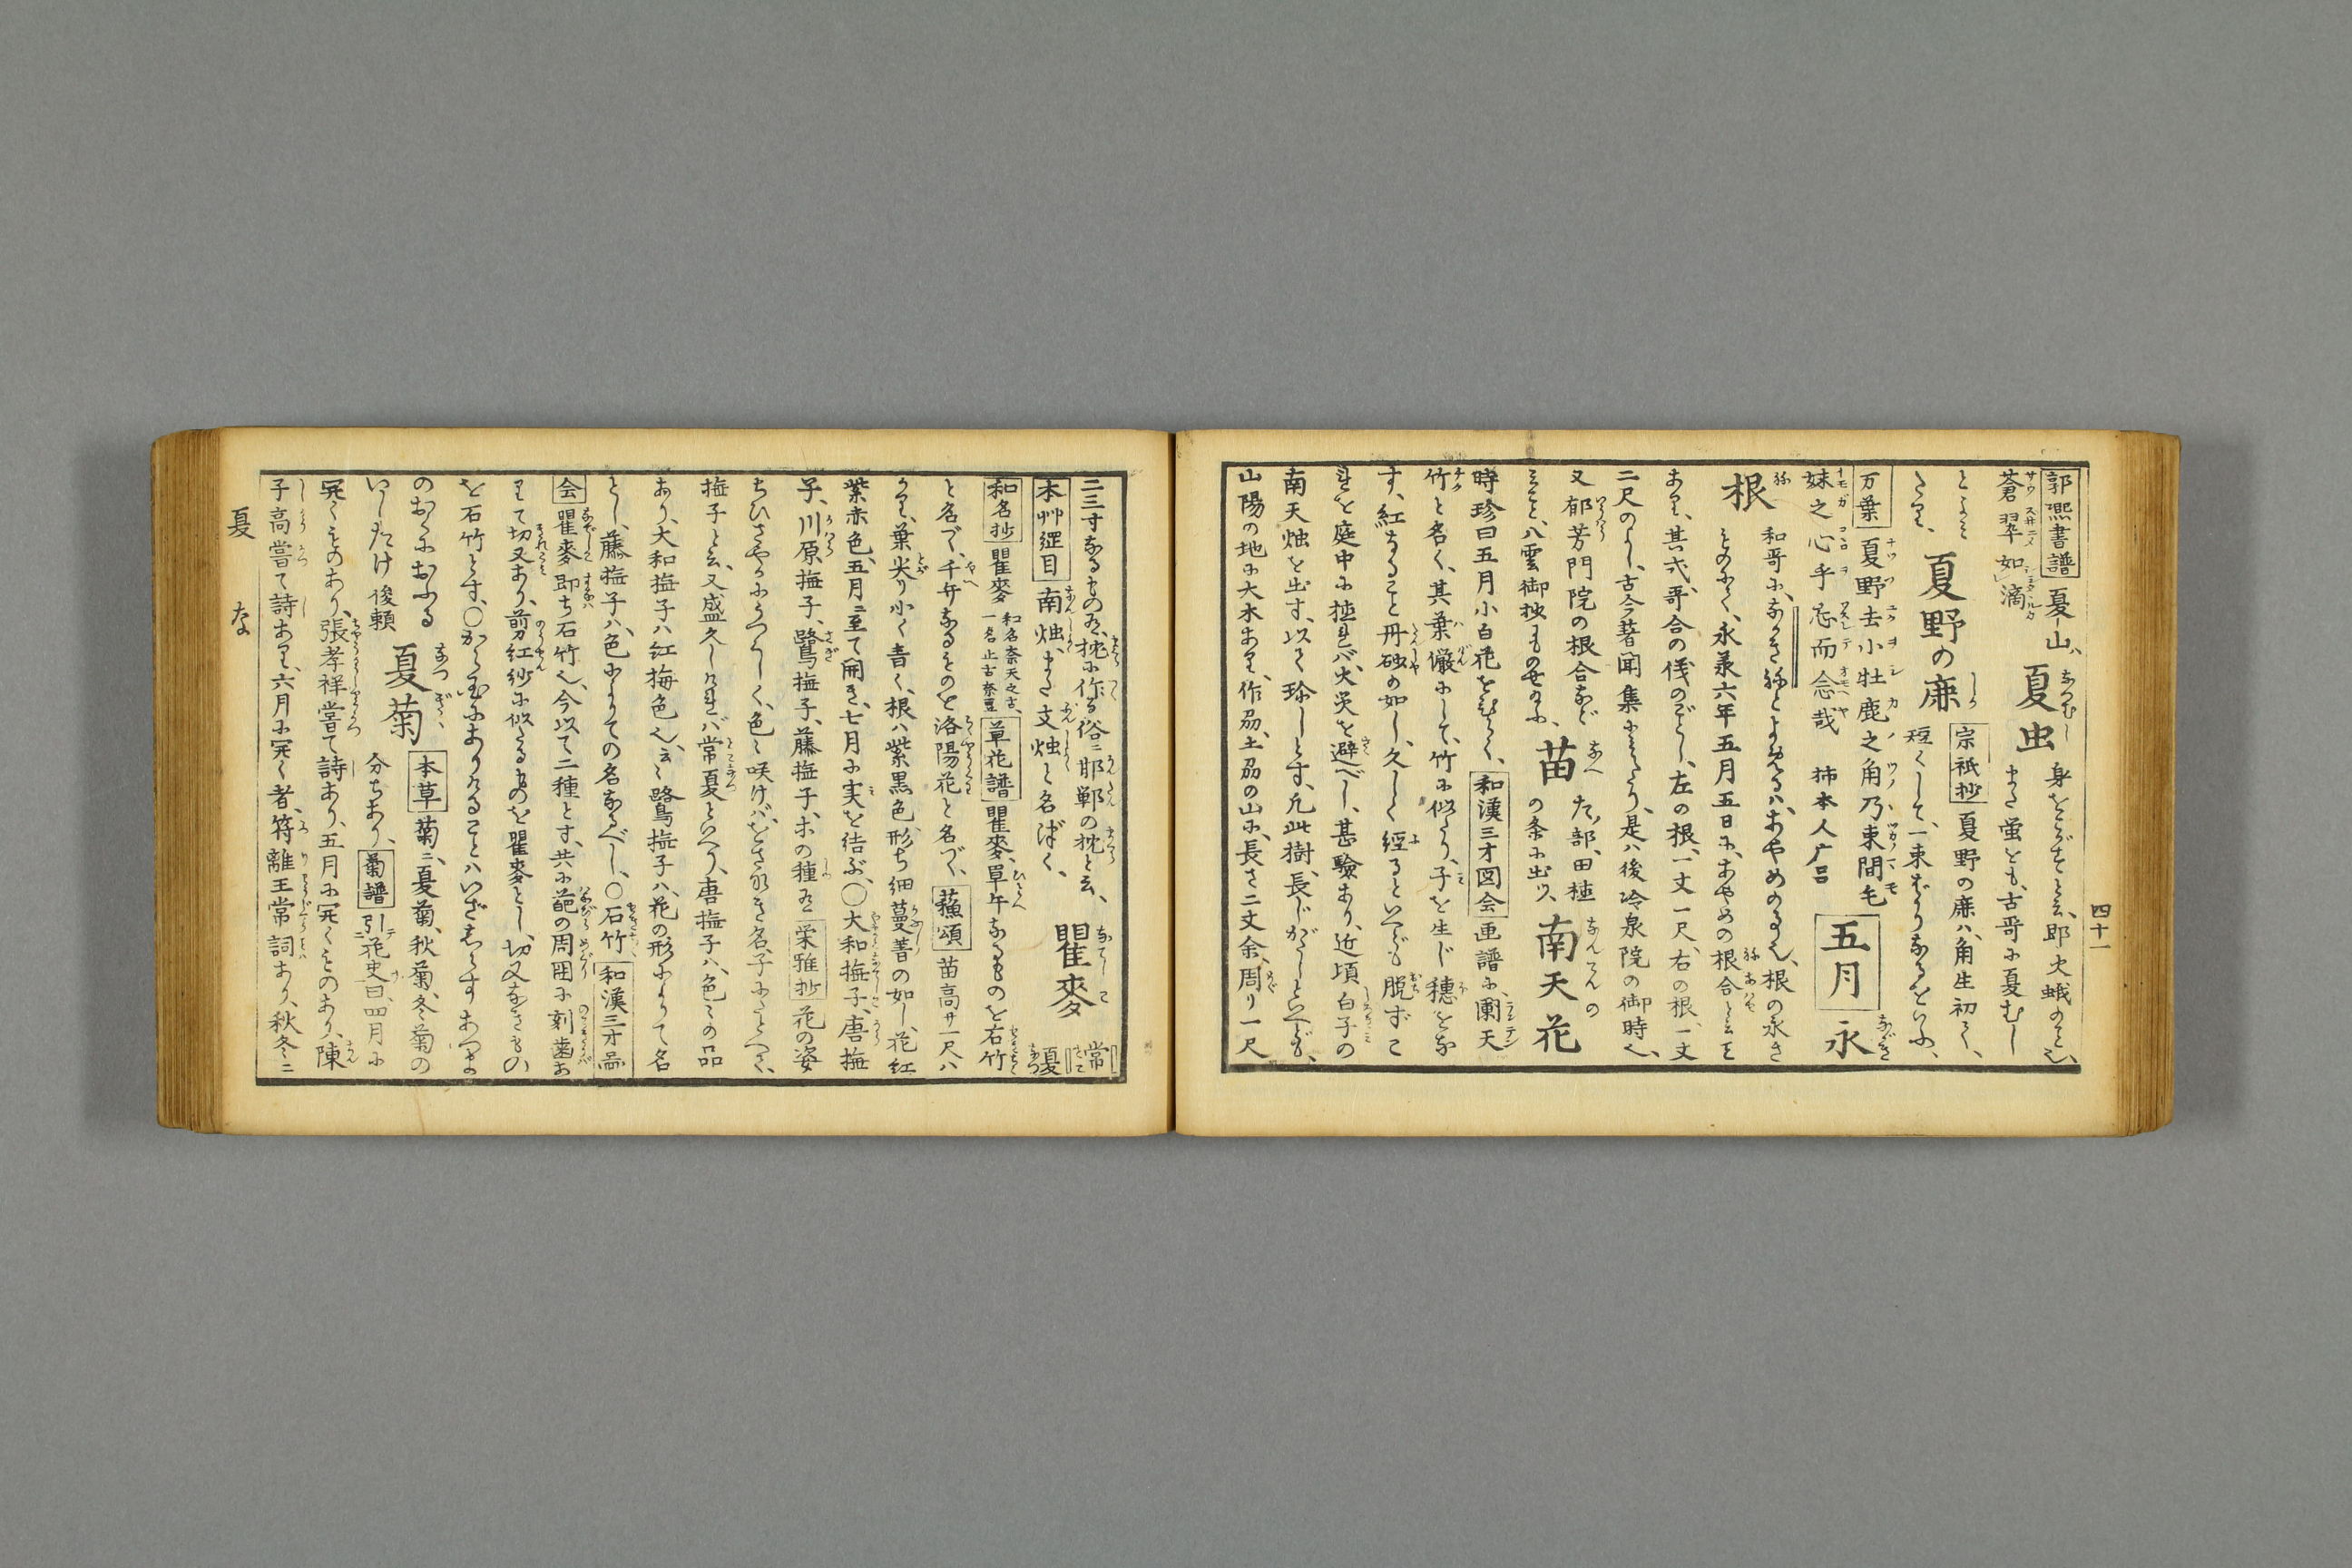 四十一
郭熙書譜 夏山ハ
蒼翠如滴
夏虫
身をこがすと云、即火蛾のこと也、
また蛍とも、古哥に夏むし
とよみ
たり、
夏野の鹿
宗祇抄 夏野の鹿ハ、角生初て、
短くして、一束ばかりなるをいふ、
万葉 夏野去小牡鹿之角乃束間毛
妹之心乎忘而念哉 柿本人广呂
五月
永
根
和哥に、ながき根とよめるハ、あやめのね也、根の永き
ものにて、永承六年五月五日に、あやめの根合と云こと
あり、其式、哥合の儀のごとし、左の根、一丈一尺、右の根、一丈
二尺のよし、古今著聞集に見えたり、是ハ後冷泉院の御時也、
又郁芳門院の根合など
こと、八雲御抄
苗
た部、田植
の条に出ツ、
南天花
なんてんの
時珍曰五月小白花をひらく、 和漢三才図会 画譜に、闌天
竹と名く、其葉儼にして、竹に似たり、子を生じ穂をな
す、紅なること丹砂の如し、久しく経るといへども脱ずこ
れを庭中に植れバ、火災を避べし、甚験あり、近頃白子の
南天烛を出す、以て珍しとす、凡此樹、長じがたしといへども、
山陽の地に大木あり、作刕、土刕の山に、長さ二丈余、周り一尺
二三寸なるもの有、枕に作る俗ニ邯鄲の枕と云、
本艸綱目 南烛、また文烛と名ばく、
瞿麥
なでしこ
常夏
和名抄 瞿麥 和名奈天之古、一名止古奈豆 草花譜 瞿麥、単弁なるものを石竹
と名づく、千弁なるものを洛陽花と名づく、 蘓頌 苗高サ一尺ハ
かり、葉尖り小く青く、根ハ紫黒色、形ち細蔓菁の如し、花紅
紫赤色、五月ニ至て開き、七月に実を結ぶ、〇大和撫子、唐撫
子、川原撫子、鷺撫子、藤撫子、ホの種有 栄雅抄 花の姿
ちひさやかにうつくしく、色々咲けバ、をさなき名、子にたとへて、
撫子と云、又盛久しけれバ常夏といへり、唐撫子ハ、色々の品
あり、大和撫子ハ紅梅色也、云々鷺撫子ハ、花の形によりて名
とし、藤撫子ハ、色によりての名なるべし、〇石竹、 和漢三才啚
会 瞿麥即ち石竹也、今以て二種とす、共に葩の周囲に刻歯あ
りて切又あり、前刀紅紗に似たるものを瞿麥とし、切又なきもの
を石竹とす、〇から玉にありけることハいざしらずあつま
のおくにおふる
いしたけ 後頼
夏菊
なつぎく
本草 菊ニ、夏菊、秋菊、冬菊の
分ちあり、 菊譜 引花史曰、四月に
開くものあり、張孝祥嘗て詩あり、五月に開くものあり、陳
子高嘗て詩あり、六月に開く者、符離王常詞あり、秋冬ニ
夏 な